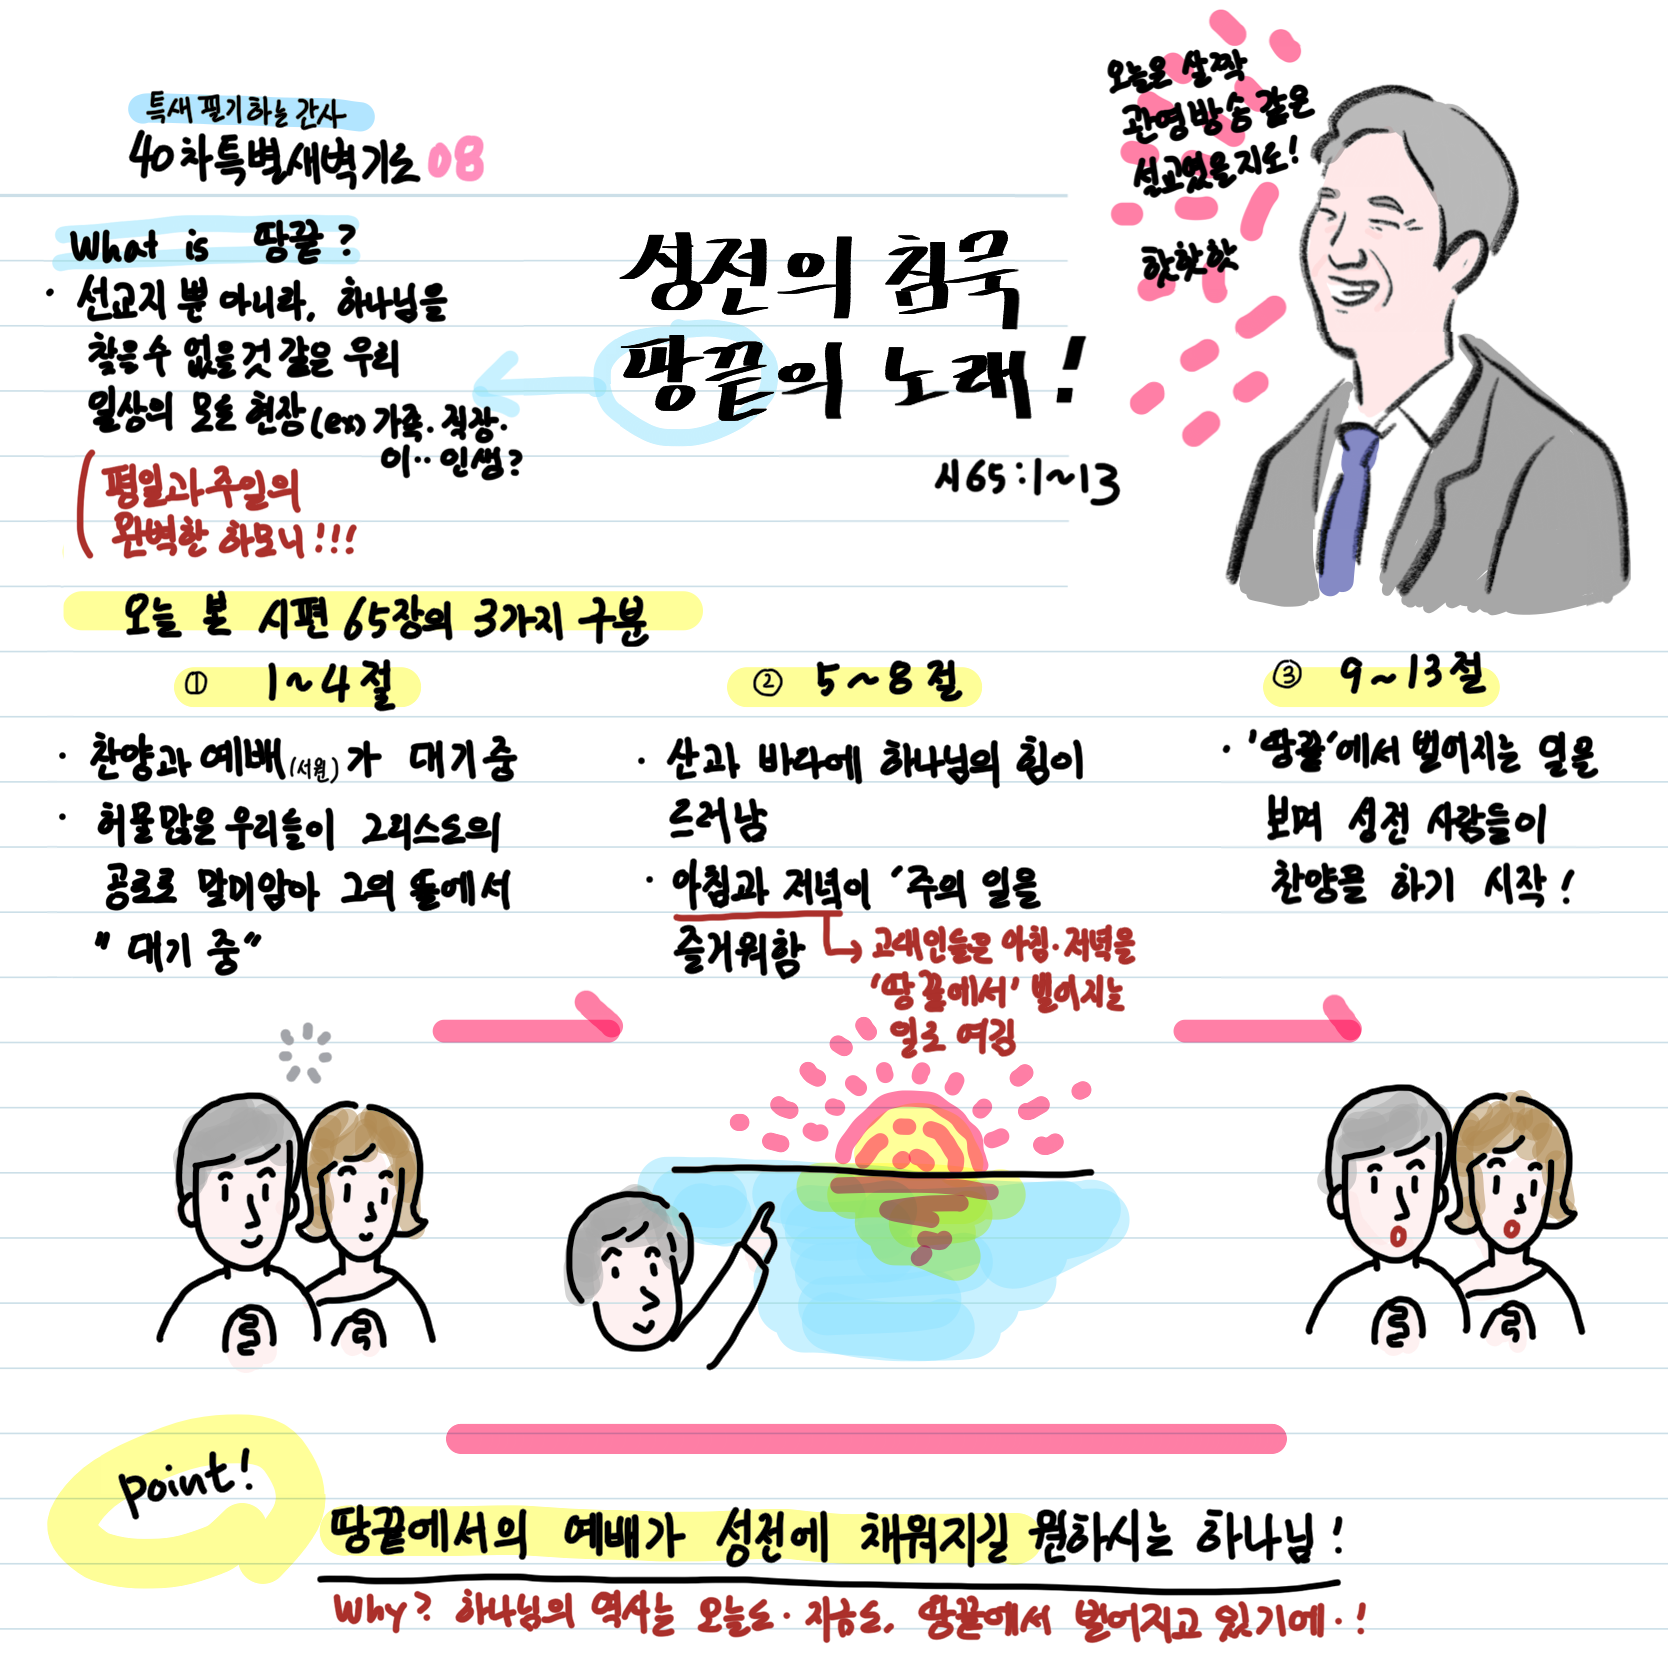 특새 필기하는 간사
40차특별새벽기도 08
오늘은 살짝
관영방송 같은
설교였을지도!
핫핫핫
What is 땅끝?
· 선교지 뿐 아니라, 하나님을
찾을 수 없을것 같은 우리
일상의 모든 현장 (ex) 가족·직장·
이·· 인생?
평일과 주일의
완벽한 하모니!!!
성전의 침묵
땅끝의 노래!
시65:1~13
오늘 본 시편 65장의 3가지 구분
① 1~4절
· 찬양과 예배(서원)가 대기중
· 허물많은 우리들이 그리스도의
공로로 말미암아 그의 뜰에서
"대기 중"
② 5~8절
· 산과 바다에 하나님의 힘이
드러남
· 아침과 저녁이 '주의 일을
즐거워함
고대인들은 아침·저녁을
'땅끝에서' 벌어지는
일로 여김
③ 9~13절
· '땅끝'에서 벌어지는 일을
보며 성전 사람들이
찬양을 하기 시작!
point!
땅끝에서의 예배가 성전에 채워지길 원하시는 하나님!
Why? 하나님의 역사는 오늘도·지금도, 땅끝에서 벌어지고 있기에·!